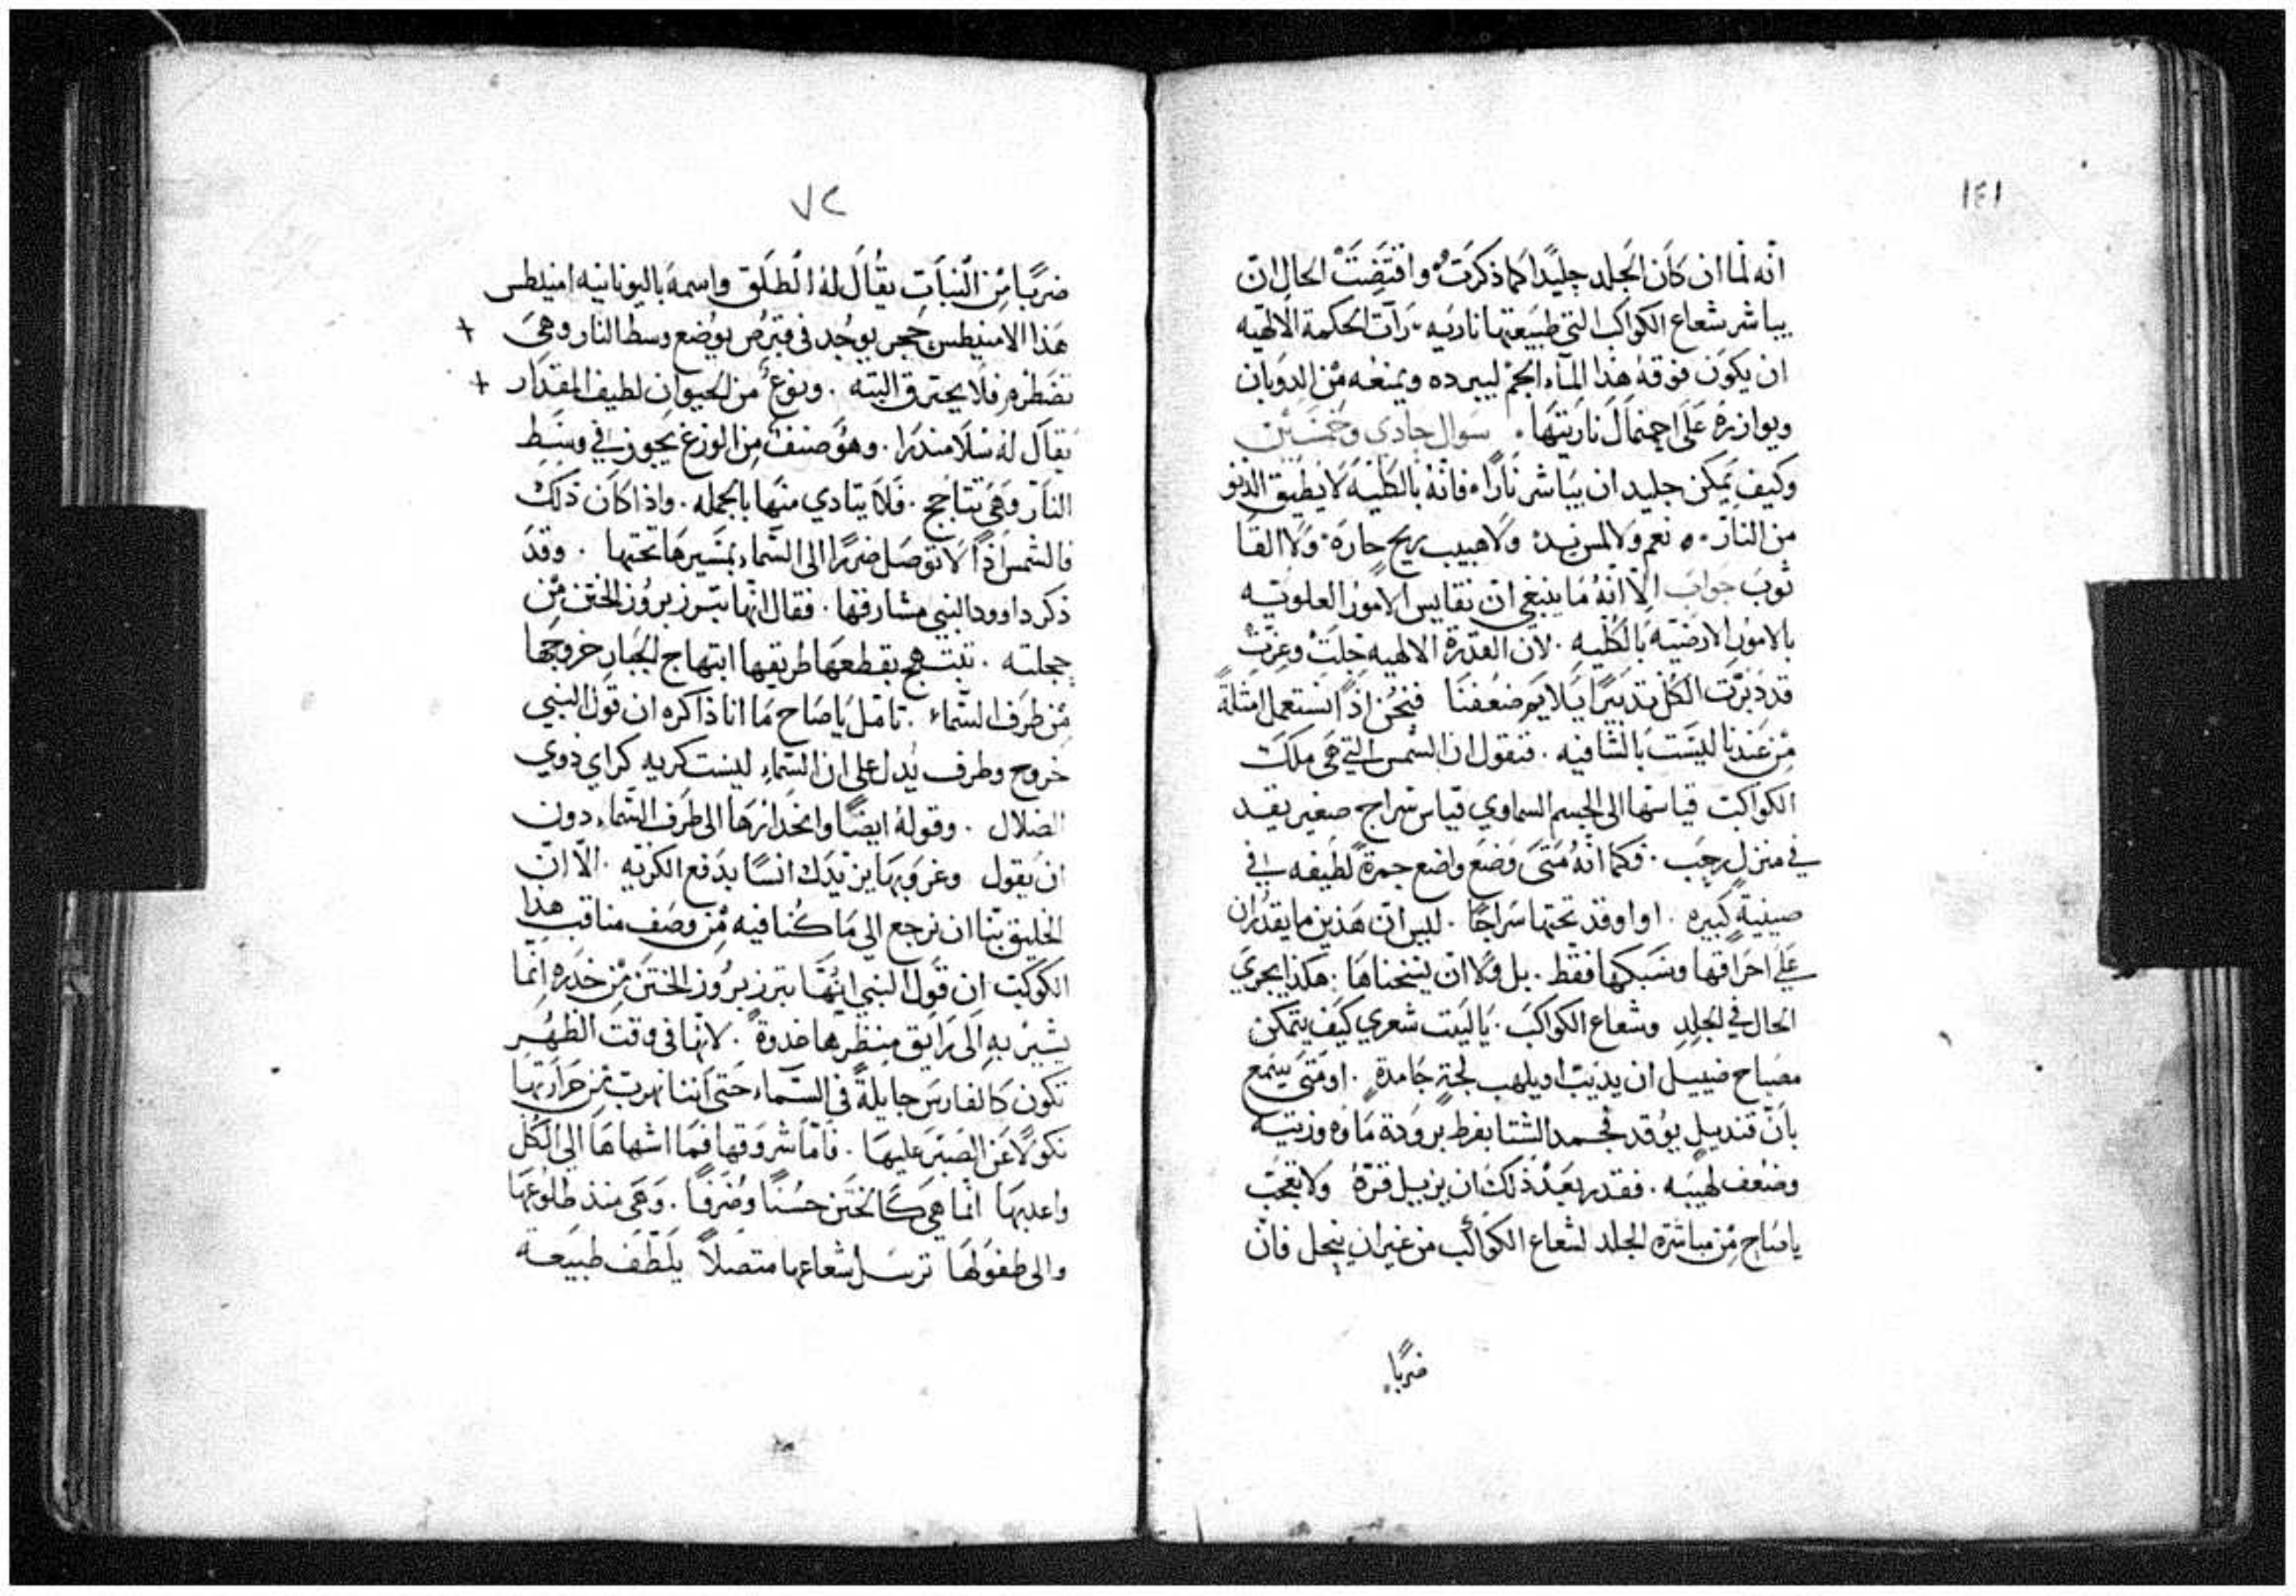 ١٤١
انّه لما ان كَان الجَلد جليدًا كما ذكرتُ واقتضتْ الحال ان
يباشر شعاع الكواكب التي طبيعتها ناريه رَات الحكمة الالهيه
ان يكون فوقهُ هذا المآء الجمّ ليبرده ويمنعه مْن الدوبان
ويوازرهُ عَلى احتمال ناريتها. سوال حادي وخمسين
وكيف يمكن جليد ان يباشر نَارًا. فانّهُ بالكلّيه لا يطيق الدنو
من النار. نعم ولا لمس يد. ولا هبيب ريح حارة. ولا القا
ثوب جواب الّا انهُ مَا ينبغي ان نقايس الامور العلويّه
بالامور الارضيّه بالكليه. لان القدرة الالهيه جلّتْ وعزّتْ
قد دبّرت الكل تدبيرًا يلايم ضعفنَا فنحن اذًا نستعمل امثلةً
مْن عندنا ليسَت بالشافيه. فنقول ان الشمس التي هَى ملكَة
الكواكب قياسها الى الجسم السماوي قياس سراج صغير يقد
في منزل رحب. فكما انّهُ متَى وَضع واضع جمرةً لطيفه في
صينيةٍ كبيره. او اوقد تحتها سَراجًا. ليس ان هَذين ما يقدران
عَلى احراقها وسَبكها فقط. بل ولا ان يسخناهَا. هكذا يجري
الحال في الجلد وشعاع الكواكب. يَا ليت شعري كيف يتمكن
مصباح ضييل ان يديب او يلهب لجةٍ جَامدةٍ. او متَى يسَمع
بانّ قنديلٍ يوقد فجمد الشتا بفرط برودة مَاوه وزيته
وضعف لهيبه. فقدر بعَد ذلك ان يزيل قرّهُ ولا تعجبْ
يا صَاح مْن مباشرة الجلد لشعاع الكواكب من غير ان ينحل فان
ضربًا
٧٢
ضربًا مْن النبَات يقُال لهُ الطلَق واسمهُ باليونانيه امنيطس
هَذا الامنيطس حجر يوجد في قبرص يوضع وسط النار وهىَ
تضطرم فلا يحترق البته. ونوعٌ من الحيوان لطيف المقدار
يقال لهُ سَلامندرا. وهوَ صنف مِن الوزغ يجوز في وسَط
النار وهَي تتاجج. فلا يتادي منها بالجمله. واذا كان ذلكْ
فالشمس اذًا لا توصل ضررًا الى السّماء بمسَيرهَا تحتها. وقد
ذكر داوود النبي مشارقها. فقال انّها تبرز بروز الختن مْن
حجلته. تبتهج بقطعهَا طريقها ابتهاج الجبار خروجهَا
مْن طرف السّماء. تامّل يَا صَاح مَا انا ذاكره ان قول النبي
خروج وطرف يُدل على ان السّماء ليست كريه كراي ذوي
الضلال. وقولهُ ايضًا وانحدارهَا الى طرف السّماء. دون
ان يقول وغروبها يزيدك انسًا بدفع الكريّه. الّا انّ
الخليق بنا ان نرجع الى مَا كُنا فيه مْن وصَف مناقب هذا
الكوكب ان قول النبي انّهَا تبرز بروز الختن مْن خدره انّما
يشير به الى رَايق منظرها غدوةً. لانّها في وقت الظهر
تكون كالفارس جَايلةً في السّماء حتى اننا نهرب مْن حَرارتها
نكولًا عَن الصبر عليهَا. فامّا شروقها فمَا اشهاهَا الى الكل
واعدبها انما هيَ كَالختن حسْنًا وضرفًا. وهَى منذ طلُوعهَا
والى طفولهَا ترسَل شعاعها متصلًا يلطّف طبيعة